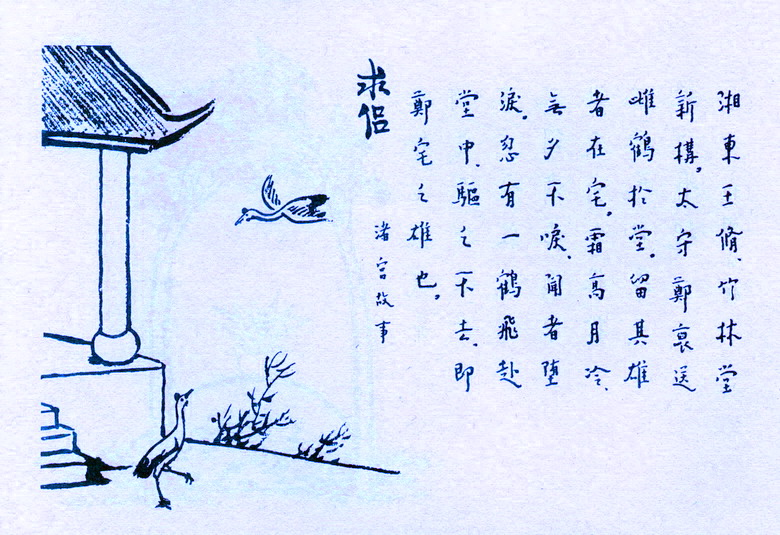 湘東王脩、竹林堂
新構。太守鄭裒送
雌鶴於堂。留其雄
者在宅。霜高月冷、
無夕不唳、聞者墮
淚。忽有一鶴飛赴
堂中、驅之不去、即
鄭宅之雄也。
求侶
渚宮故事